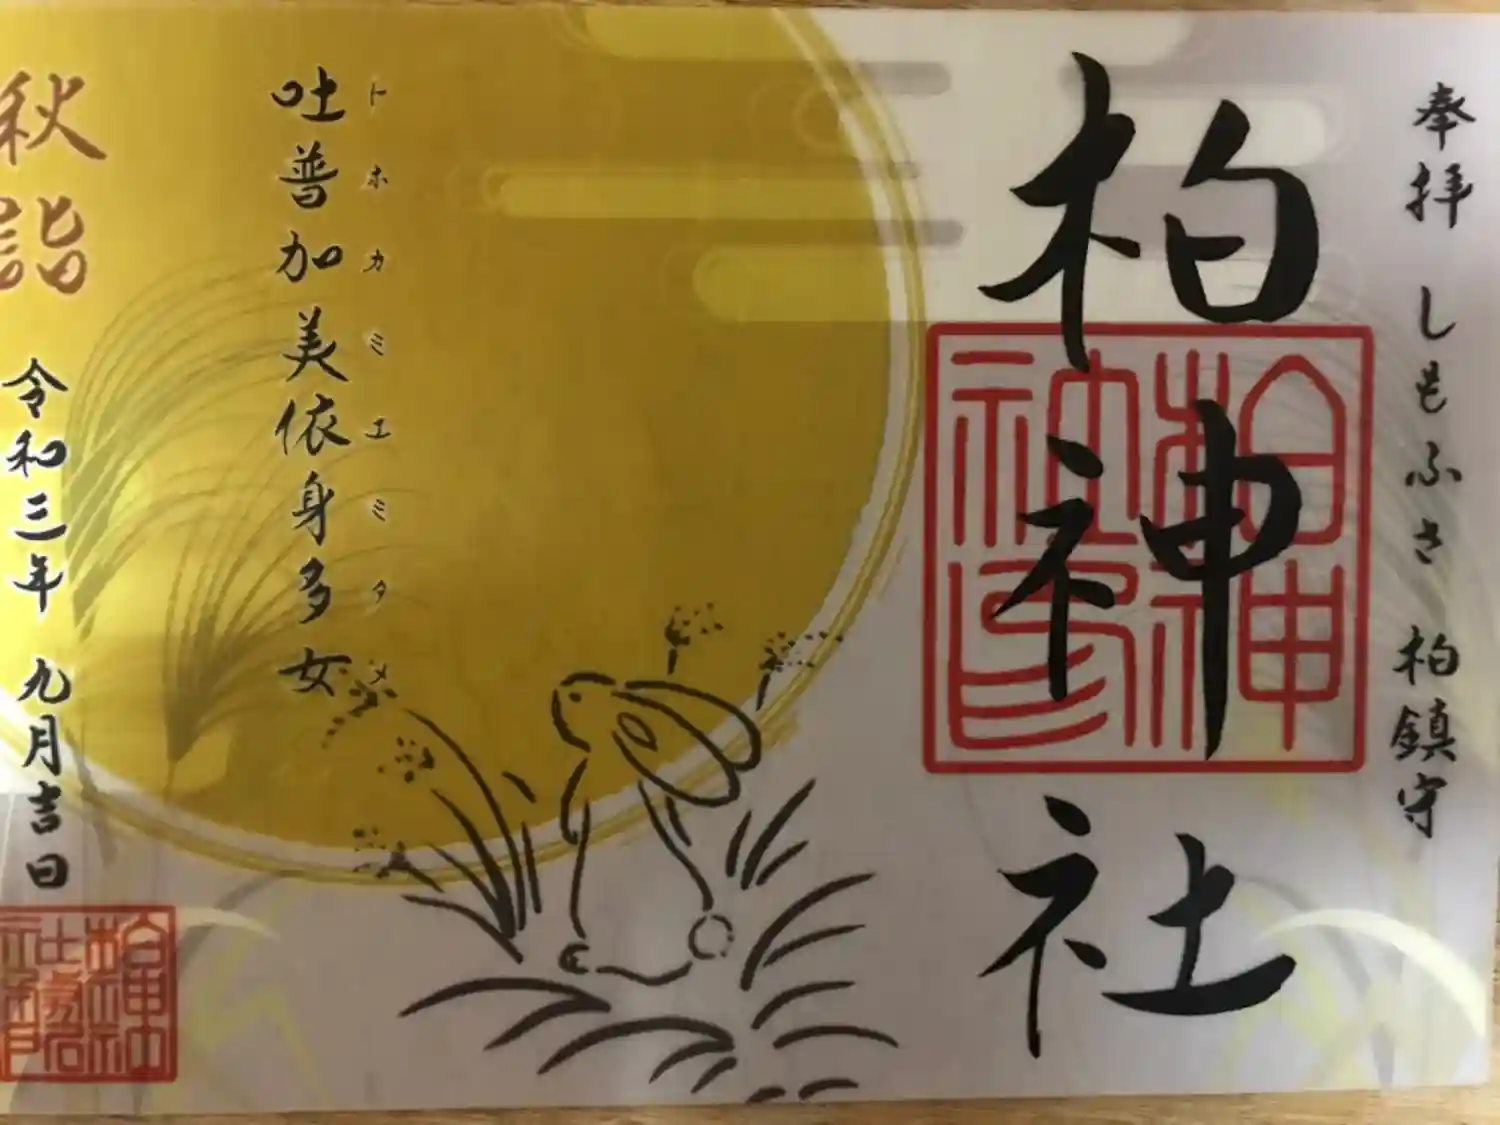 奉拝 しもふさ 柏鎮守
柏神社
柏神社印
トホカミエミタメ
吐普加美依身多女
秋詣
令和三年 九月吉日